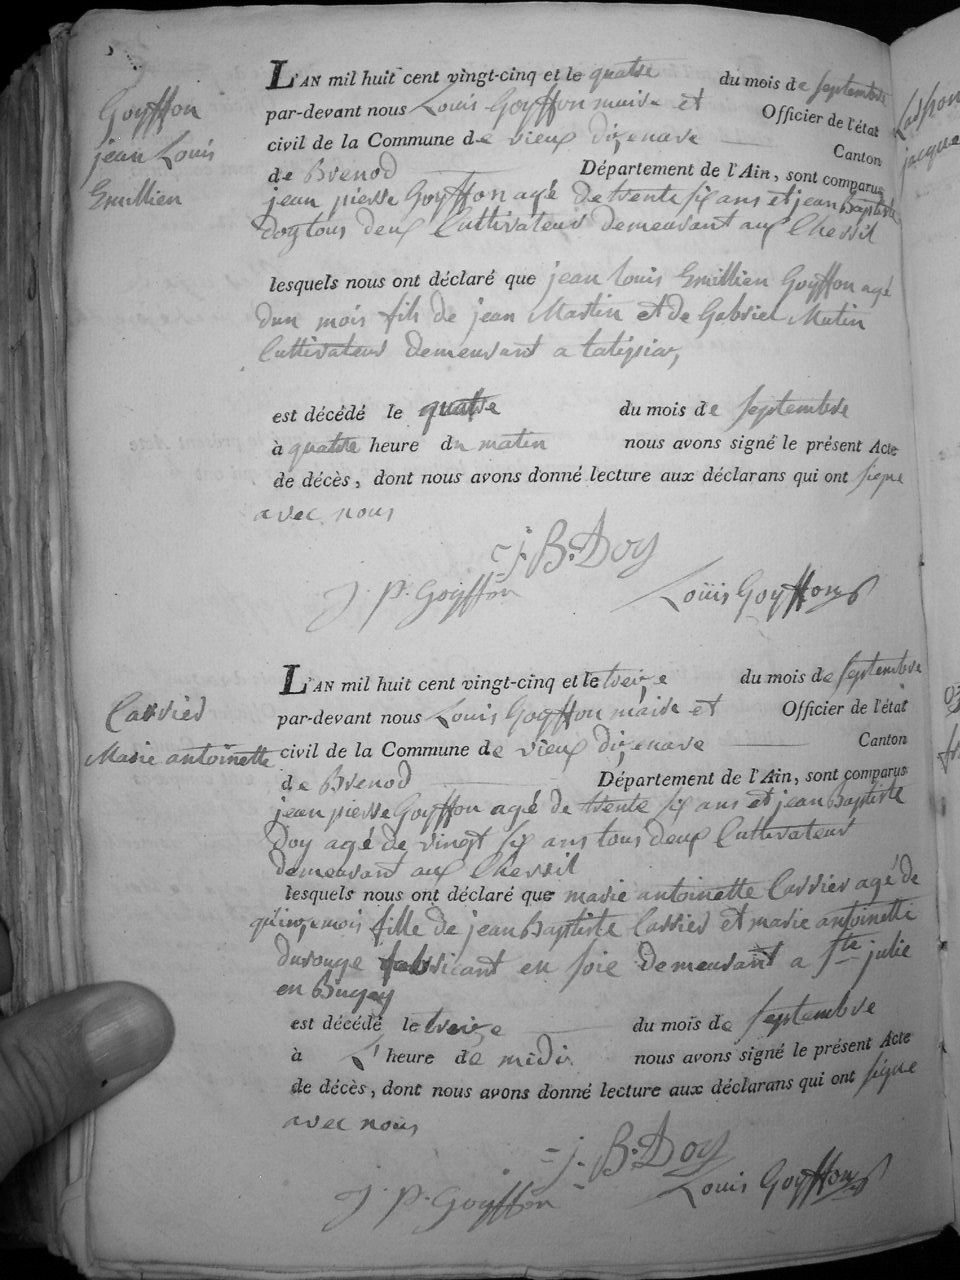 Goyffon
jean Louis
Emillien
L'AN mil huit cent vingt-cinq et le quatre du mois de septembre
par-devant nous Louis Goyffon maire et Officier de l'état
civil de la Commune de vieux dizenave Canton
de Brenod Département de l'Ain, sont comparus
jean pierre Goyffon agé de trente six ans et jean Baptiste
doy tous deux Cultivateur demeurant aux
lesquels nous ont déclaré que jean louis Emillien Goyffon agé
dun mois fils de jean Martin et de Gabriel Mutin
Cultivateur demeurant a
est décédé le quatre du mois de septembre
à quatre heure du matin nous avons signé le présent Acte
de décès, dont nous avons donné lecture aux déclarans qui ont signe
avec nous
j. B. Doy
J. P. Goyffon Louis Goyffon
Carrier
Marie antoinette
L'AN mil huit cent vingt-cinq et le treize du mois de septembre
par-devant nous Louis Goyffon maire et Officier de l'état
civil de la Commune de vieux dizenave Canton
de Brenod Département de l'Ain, sont comparus
jean pierre Goyffon agé de trente six ans et jean Baptiste
Doy agé de vingt six ans tous deux Cultivateur
demeurant aux
lesquels nous ont déclaré que marie antoinette Carrier agé de
quinze mois fille de jean Baptiste Carrier et marie antoinette
fabricant en soie demeurant a Ste julie
en Bugey
est décédé le treize du mois de septembre
à 1 heure de midi nous avons signé le présent Acte
de décès, dont nous avons donné lecture aux déclarans qui ont signe
avec nous
j. B. Doy
J. P. Goyffon Louis Goyffon
jacque